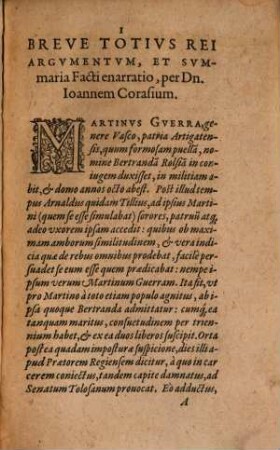 I
BREVE TOTIVS REI
ARGVMENTVM, ET SVM-
maria Facti enarratio, per Dn.
Ioannem Corasium.
MARTINVS GVERRA, ge-
nere Vasco, patria Artigaten-
sis, quum formosam puellā, no-
mine Bertrandā Rolsiā in con-
iugem duxisset, in militiam a-
bit, & domo annos octo abest. Post illud tem-
pus Arnaldus quidam Tillius, ad ipsius Marti-
ni (quem se esse simulabat) sorores, patruū atq;
adeo vxorem ipsam accedit: quibus ob maxi-
mam amborum similitudinem, & vera indi-
cia quæ de rebus omnibus prodebat, facile per-
suadet se eum esse quem prædicabat: nempe i-
psum verum Martinum Guerram. Ita fit, vt
pro Martino à toto etiam populo agnitus, ab i-
psa quoque Bertranda admittatur: cumq́, ea
tanquam maritus, consuetudinem per trien-
nium habet, & ex ea duos liberos suscipit. Orta
post ea quadam imposturæ suspicione, dies illi a-
pud Prætorem Regiensem dicitur, à quo in car-
cerem coniectus, tandem capite damnatus, ad
Senatum Tolosanum prouocat. Eò adductus,
A